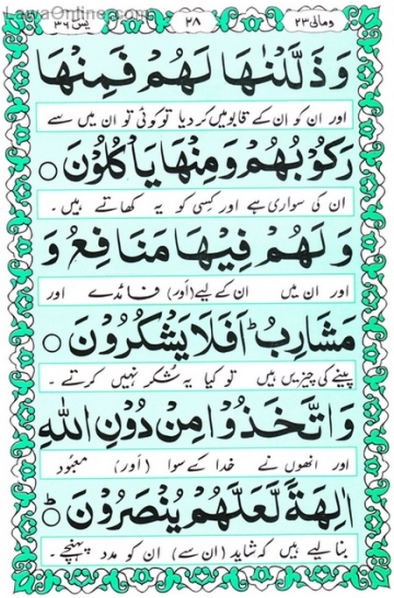 LawaOnline.com
ومالی ۲۳
۲۸
یٰسٓ ۳۶
وَذَلَّلْنٰهَا لَهُمْ فَمِنْهَا
اور ان کو ان کے قابو میں کر دیا تو کوئی تو ان میں سے
رَكُوْبُهُمْ وَمِنْهَا يَاْكُلُوْنَ ○
ان کی سواری ہے اور کسی کو یہ کھاتے ہیں۔
وَلَهُمْ فِيْهَا مَنَافِعُ وَ
اور ان میں ان کے لیے (اور) فائدے اور
مَشَارِبُ ؕ اَفَلَا يَشْكُرُوْنَ ○
پینے کی چیزیں ہیں تو کیا یہ شکر نہیں کرتے۔
وَاتَّخَذُوْا مِنْ دُوْنِ اللّٰهِ
اور انھوں نے خدا کے سوا (اور) معبُود
اٰلِهَةً لَّعَلَّهُمْ يُنْصَرُوْنَ ○ؕ
بنا لیے ہیں کہ شاید (ان سے) ان کو مدد پہنچے۔